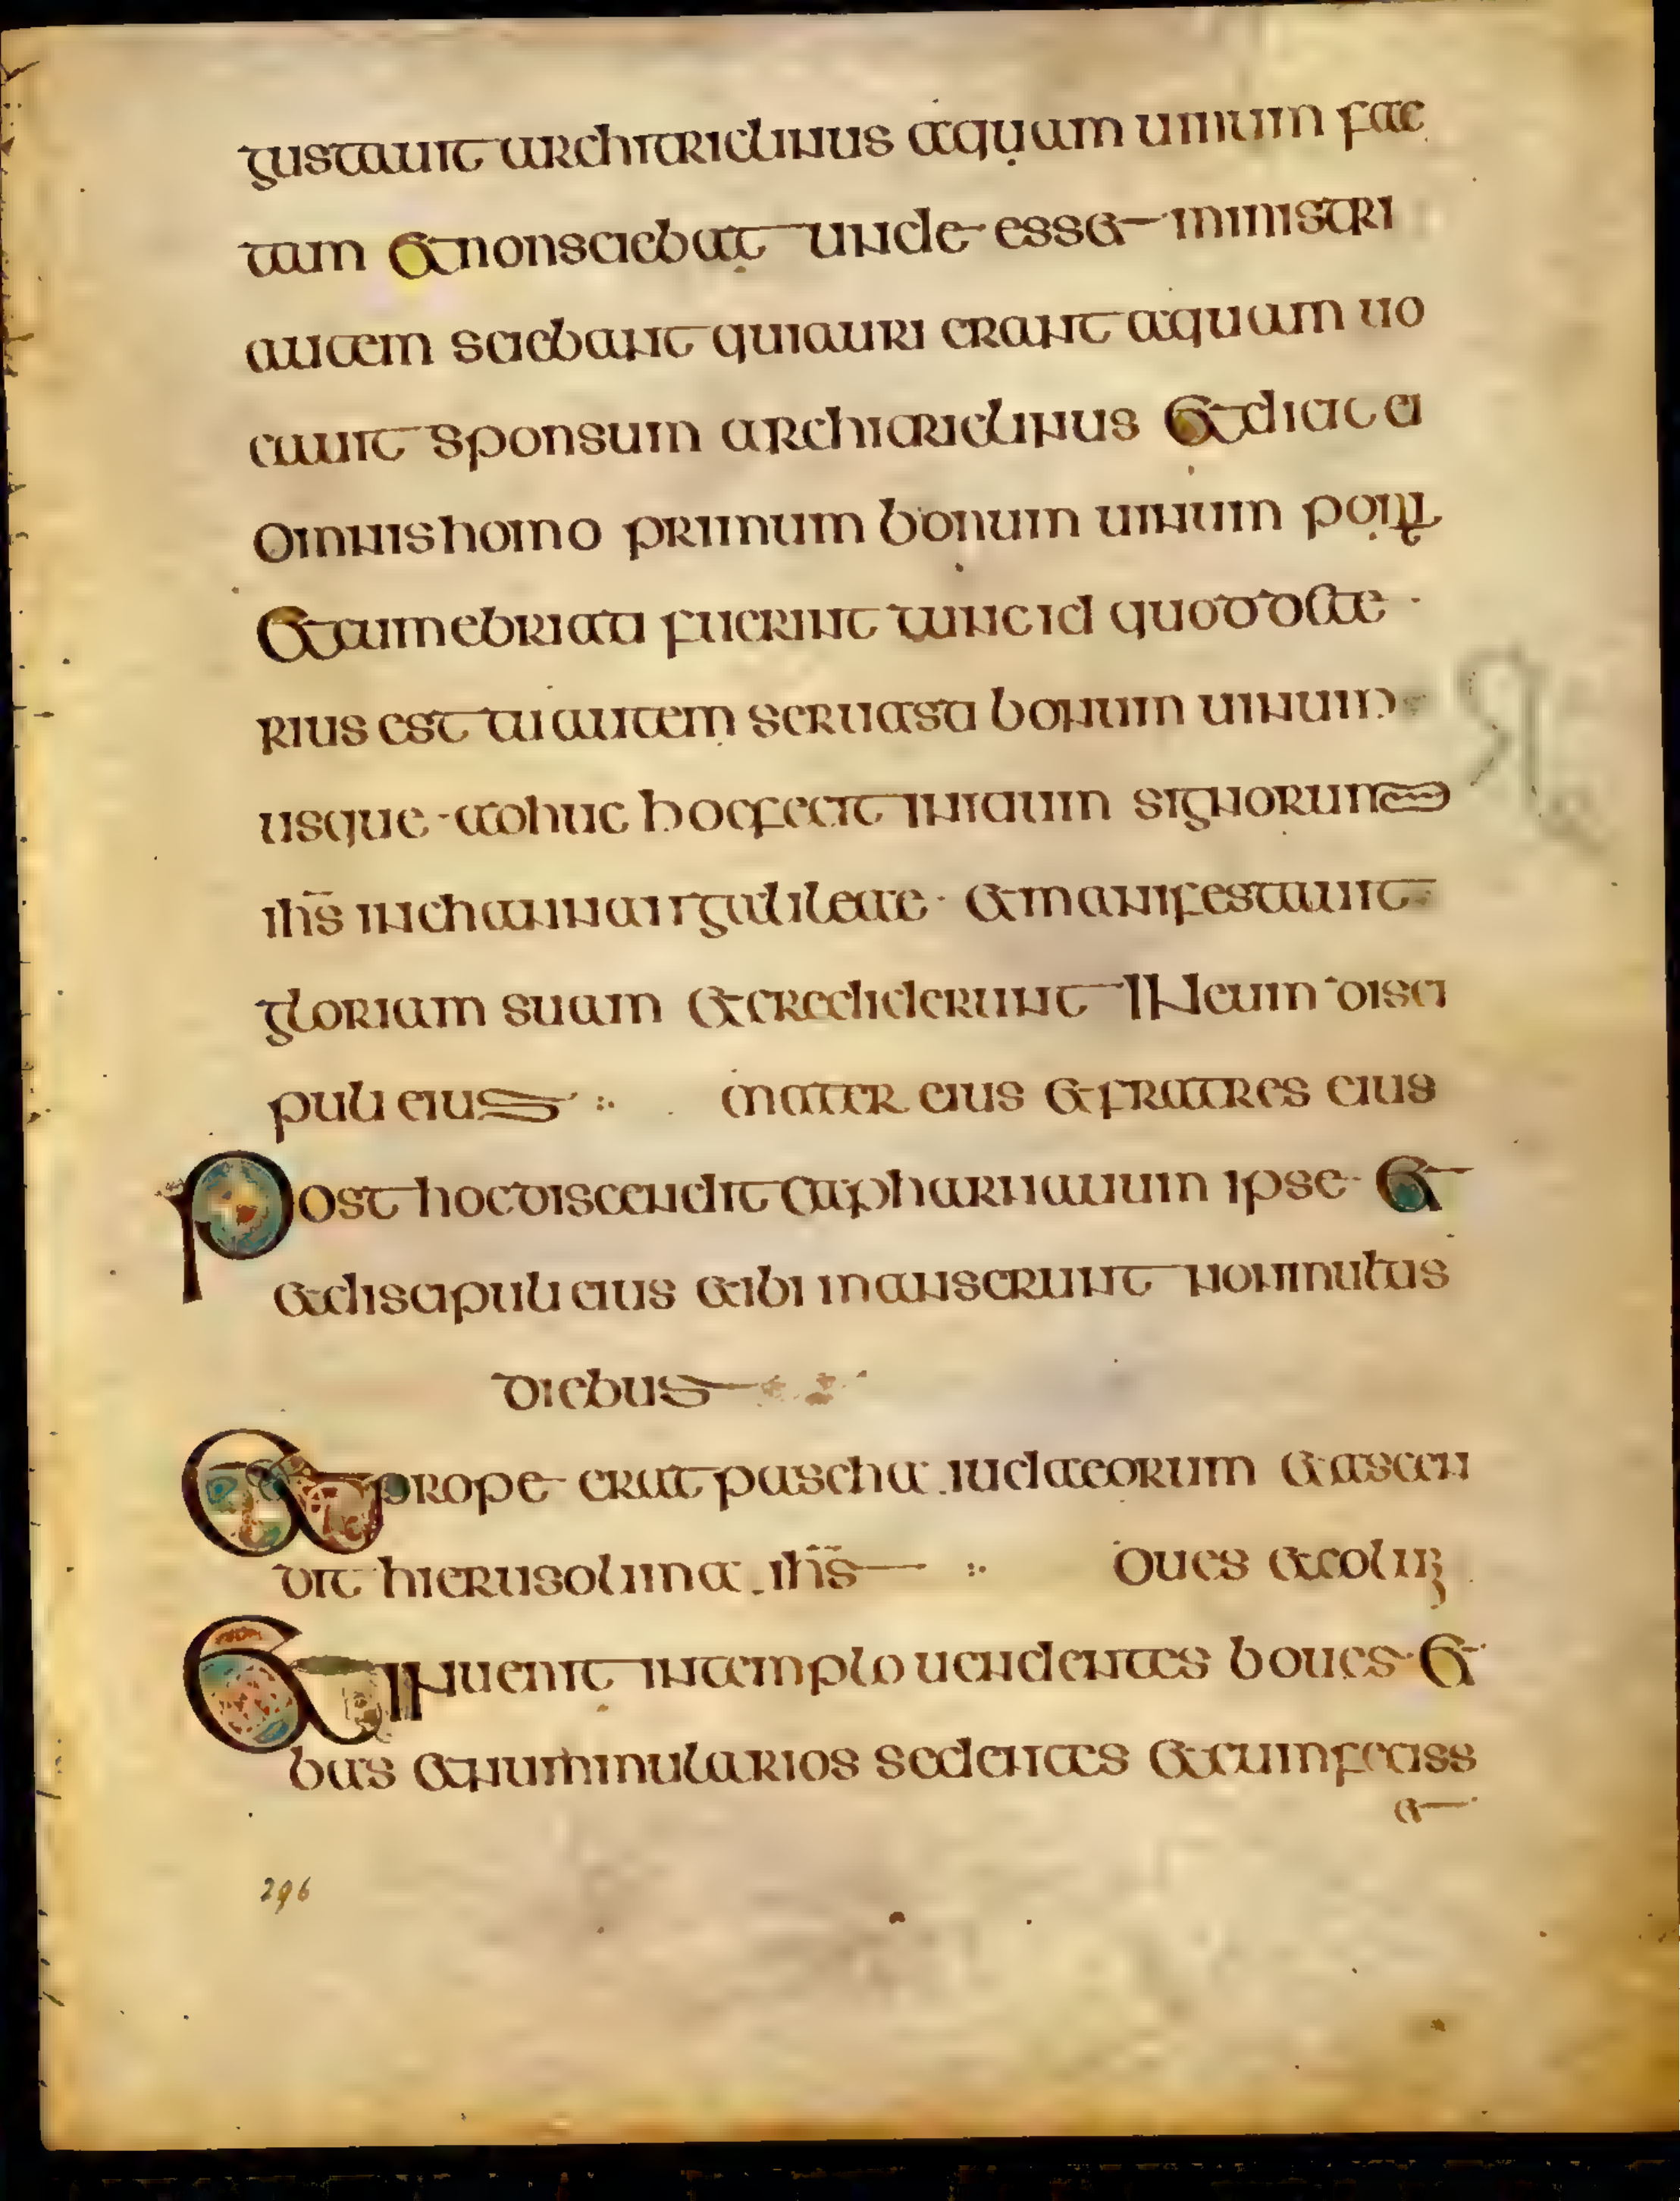 gustauit architriclinus aquam uinum fac
tam et non sciebat unde esset ministri
autem sciebant qui auri erant aquam uo
cauit sponsum architriclinus et dicit ei
omnis homo primum bonum uinum ponit
et cum ebriati fuerint tunc id quod dete
rius est tu autem seruasti bonum uinum
usque adhuc hoc fecit initium signorum
ihs in channan galileae et manifestauit
gloriam suam et crediderunt in eum disci
puli eius mater eius et fratres eius
Post hoc discendit capharnauum ipse et
et discipuli eius et ibi manserunt non multis
diebus
Et prope erat pascha iudaeorum et ascen
dit hierusolima ihs oues et colum
Et inuenit in templo uendentes boues et
bas et numinularios sedentes et cum feciss
et
296